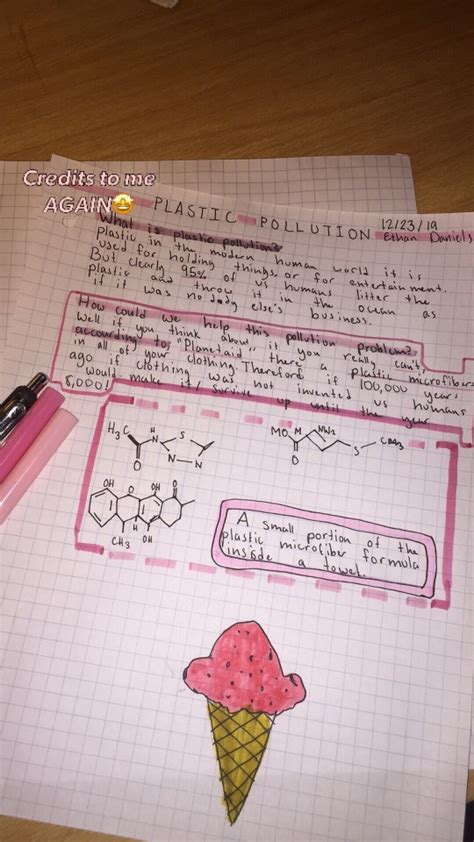 Credits to me
AGAIN🤩
PLASTIC POLLUTION
12/23/19
Ethan Daniels
What is plastic pollution?
plastic in the modern human world it is
used for holding things, or for entertainment.
But clearly 95% of us humans litter the
plastic and throw it in the ocean as
if it was no body else's business.
How could we help this pollution problem?
Well if you think about it you really can't,
accoarding to "Planetaid" there a plastic microfiber
in all of your clothing. Therefore if 100,000 years
ago if clothing was not invented us humans
would make it/ survive up until the year
8,000!
H3C
H
N
S
O
N
N
MO
M
NN2
O
S
OH
O
OH
O
CH3
H
OH
A small portion of the
plastic microfiber formula
inside a towel.